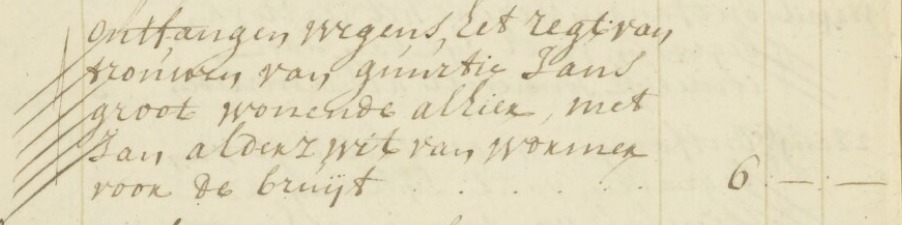 ontfangen wegens het regt van
trouwen van guurtie Jans
groot wonende alhier, met
Jan alderz wit van wormer
voor de bruijt . . . . . . 6 : — : —